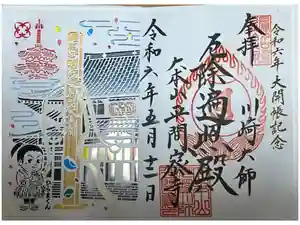 令和六年 大開帳記念
奉拝
川崎大師
厄除遍照殿
大本山平間寺
令和六年五月十二日